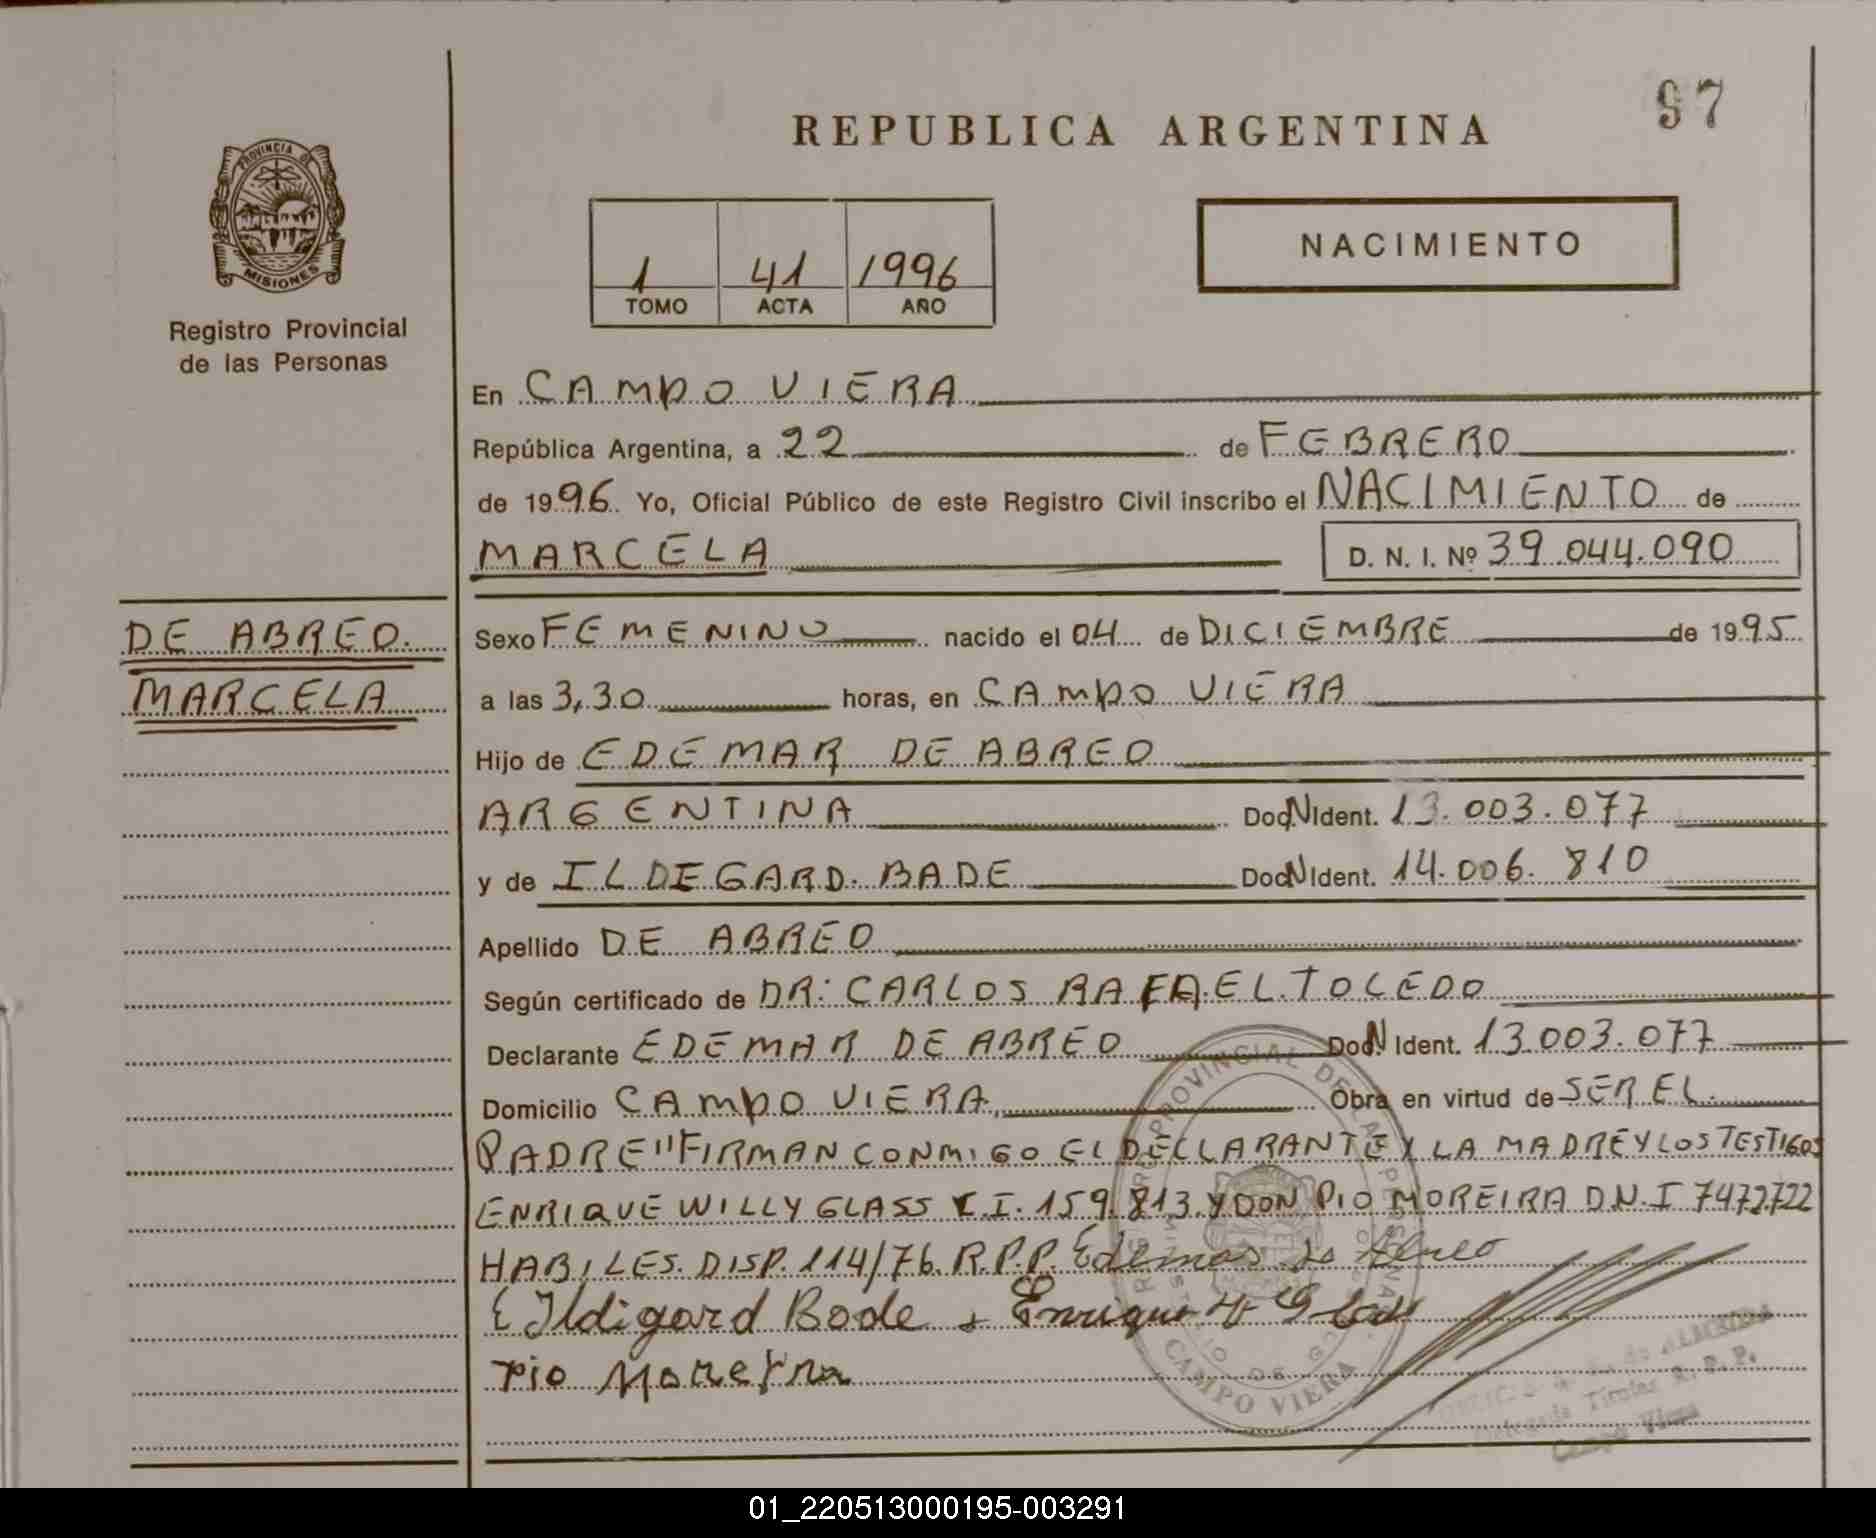 97
REPUBLICA ARGENTINA
PROVINCIA DE
MISIONES
Registro Provincial
de las Personas
1 41 1996
TOMO ACTA AÑO
NACIMIENTO
En CAMPO VIERA
República Argentina, a 22 de FEBRERO
de 1996 Yo, Oficial Público de este Registro Civil inscribo el NACIMIENTO de
MARCELA D. N. I. Nº 39.044.090
DE ABREO.
MARCELA
Sexo FEMENINO nacido el 04 de DICIEMBRE de 1995
a las 3,30 horas, en CAMPO VIERA
Hijo de EDEMAR DE ABREO
ARGENTINA Doc.N Ident. 13.003.077
y de ILDEGARD. BADE Doc.N Ident. 14.006.810
Apellido DE ABREO
Según certificado de DR: CARLOS RAFAEL TOLEDO
Declarante EDEMAR DE ABREO Doc.N Ident. 13.003.077
Domicilio CAMPO VIERA Obra en virtud de SER EL
PADRE" FIRMAN CONMIGO EL DECLARANTE Y LA MADRE Y LOS TESTIGOS
ENRIQUE WILLY GLASS C.I. 159.813 Y DON PIO MOREIRA D.N.I 7472722
HABILES. DISP. 114/76. R.P.P. Edemar de Abreo
Ildigard Bade Enrique W Glass
Pio Moreira
CAMPO VIERA
Titular R. P. P.
Campo Viera
01_220513000195-003291